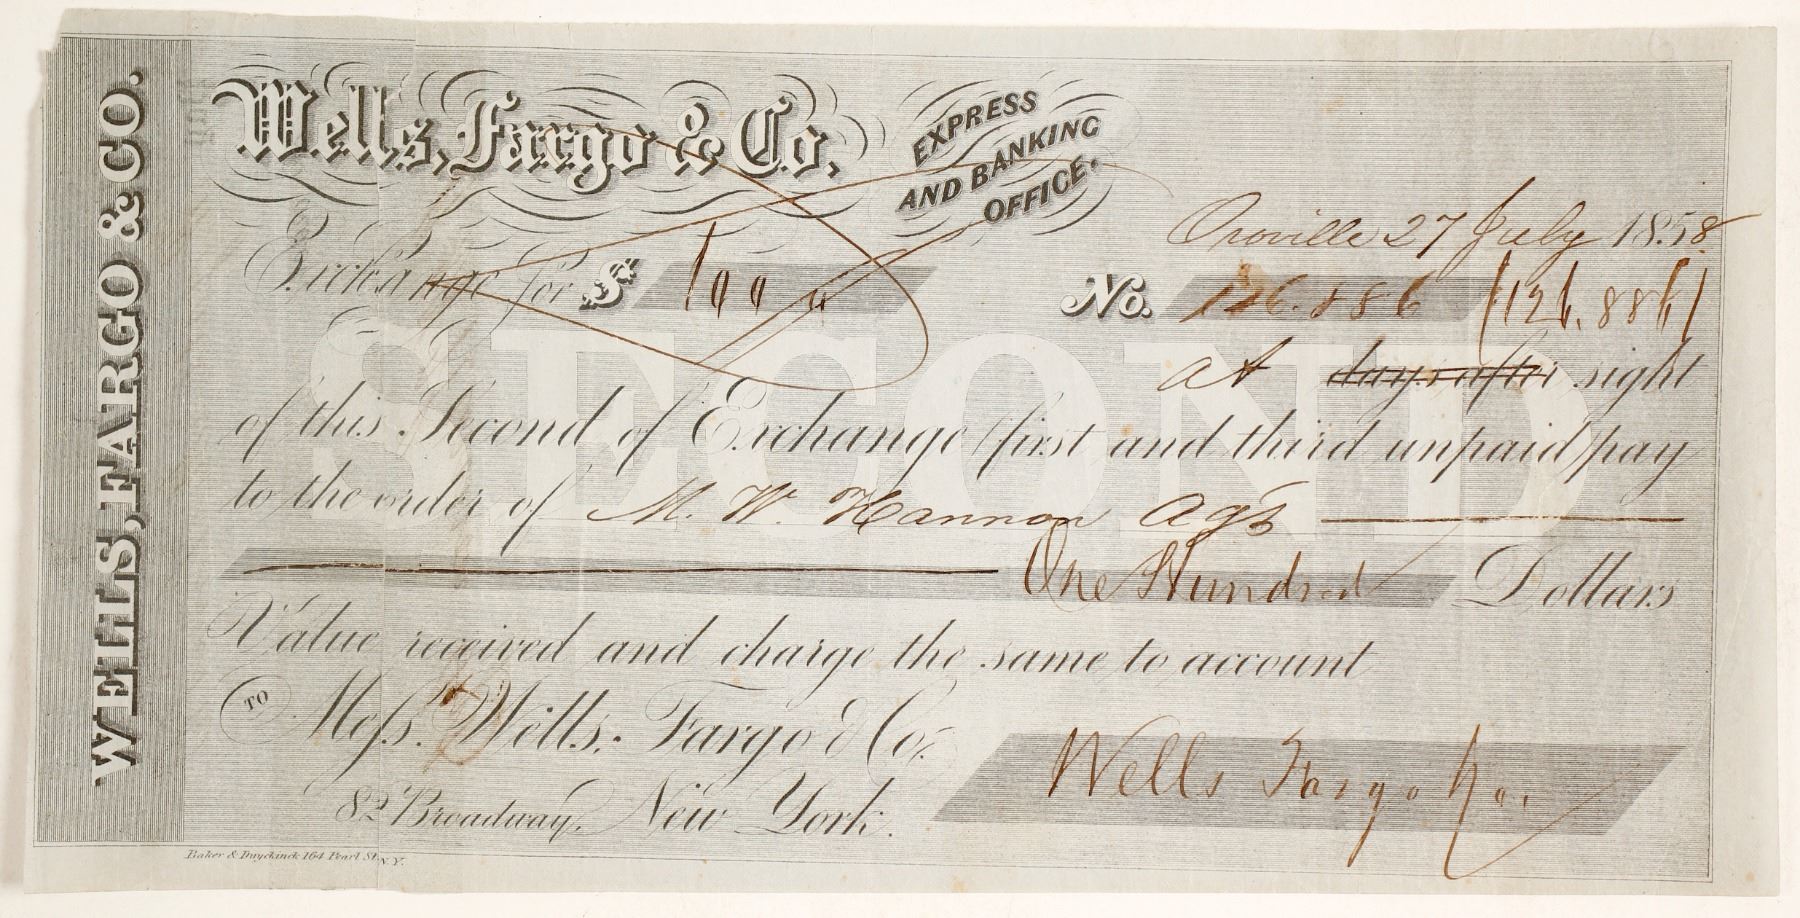 WELLS, FARGO & CO.
Wells, Fargo & Co.
EXPRESS
AND BANKING
OFFICE.
Oroville 27 July 1858
Exchange for $ 100 No. 126.886 (126.886)
SECOND
at days after sight
of this Second of Exchange (first and third unpaid) pay
to the order of M. W. Hannon Agt
One Hundred Dollars
Value received and charge the same to account
TO Mess. Wells, Fargo & Co.
82 Broadway, New York.
Wells Fargo & Co.
Baker & Duyckinck 164 Pearl St. N.Y.